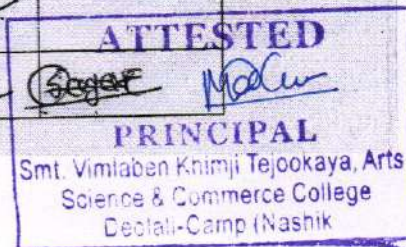 ATTESTED
Sagar
PRINCIPAL
Smt. Vimlaben Khimji Tejookaya, Arts
Science & Commerce College
Deolali-Camp (Nashik